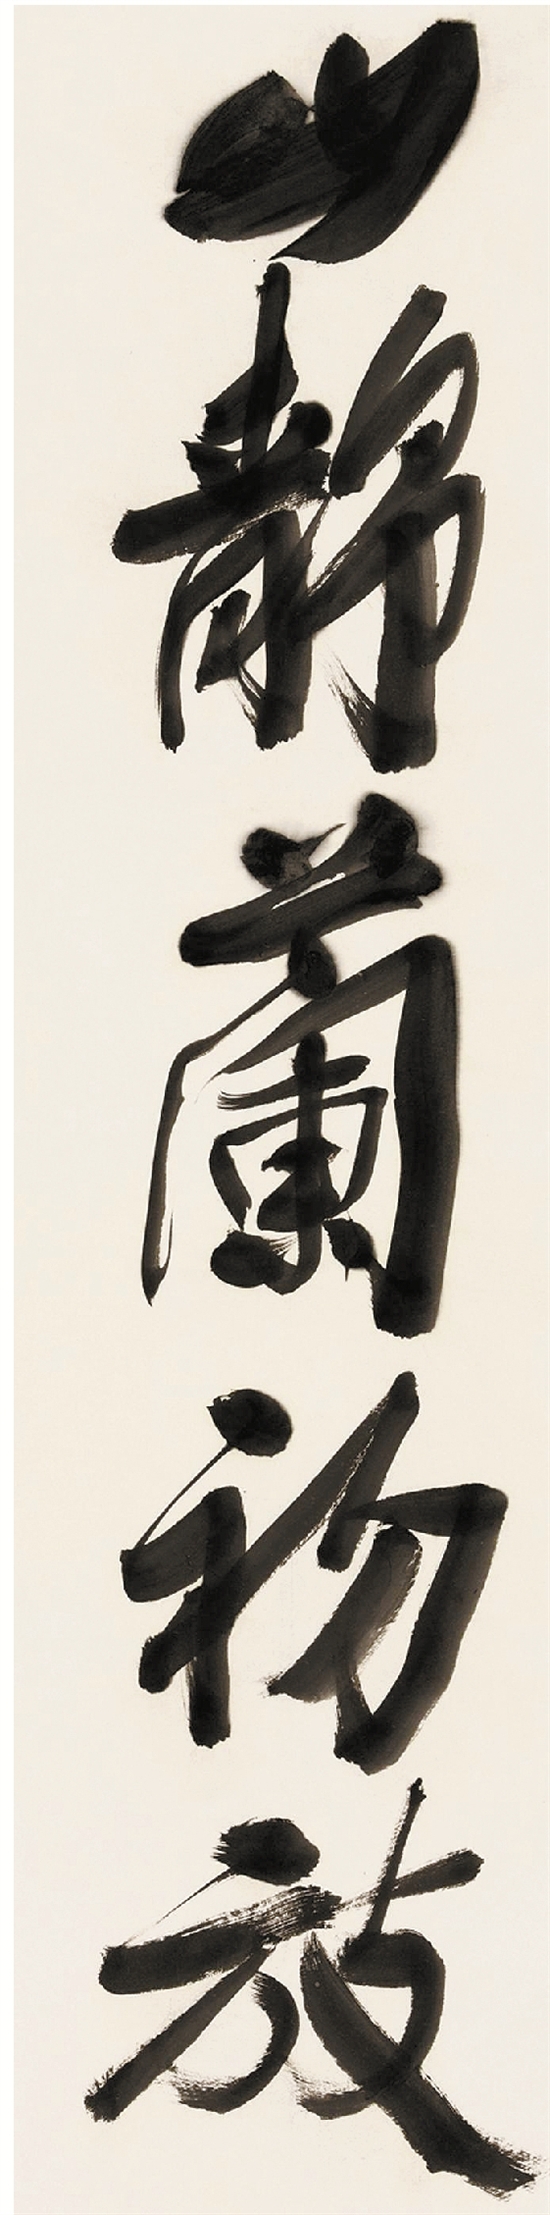 山靜蘭初放